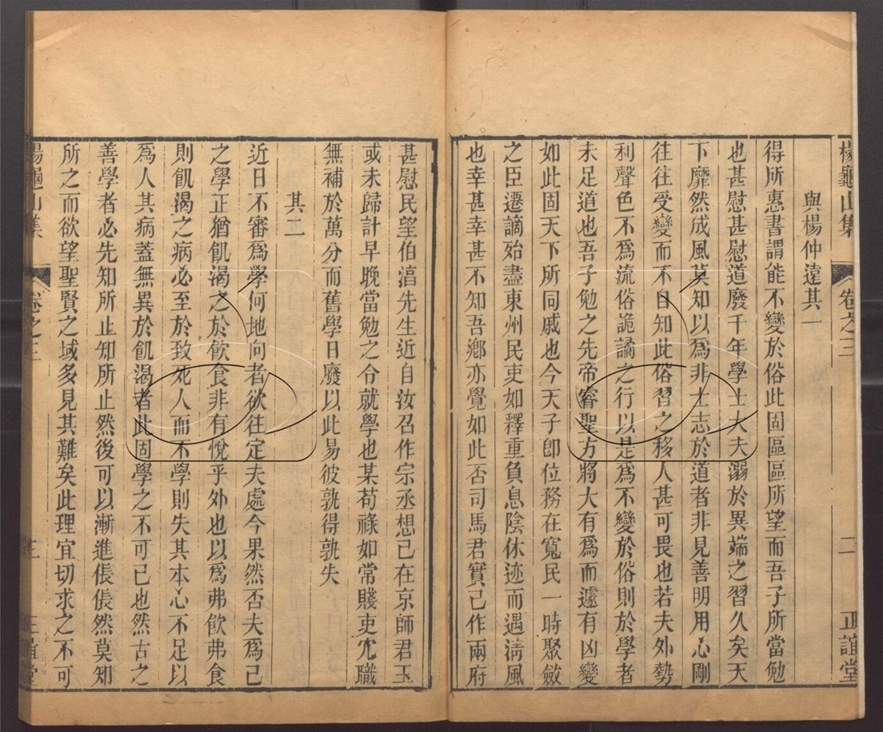 楊龜山集 卷之三 二 正誼堂
與楊仲遠其一
得所惠書謂能不變於俗此固區區所望而吾子所當勉
也甚慰甚慰道廢千年學士大夫溺於異端之習久矣天
下靡然成風莫知以爲非士志於道者非見善明用心剛
往往受變而不自知此俗習之移人甚可畏也若夫外勢
利聲色不爲流俗詭譎之行以是爲不變於俗則於學者
未足道也吾子勉之先帝睿聖方將大有爲而遽有凶變
如此固天下所同戚也今天子卽位務在寬民一時聚斂
之臣遷謫殆盡東州民吏如釋重負息陰休迹而遇清風
也幸甚幸甚不知吾鄉亦覺如此否司馬君實已作兩府
甚慰民望伯淳先生近自汝召作宗丞想已在京師君玉
或未歸計早晚當勉之令就學也某苟祿如常賤吏宂職
無補於萬分而舊學日廢以此易彼孰得孰失
其二
近日不審爲學何地向者欲往定夫處今果然否夫爲己
之學正猶飢渴之於飮食非有悅乎外也以爲弗飮弗食
則飢渴之病必至於致死人而不學則失其本心不足以
爲人其病蓋無異於飢渴者此固學之不可已也然古之
善學者必先知所止知所止然後可以漸進倀倀然莫知
所之而欲望聖賢之域多見其難矣此理宜切求之不可
楊龜山集 卷之三 三 正誼堂